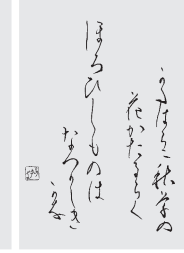 かたはらに秋草の
花かたるらく
ほろひしものは
なつかしき
かな